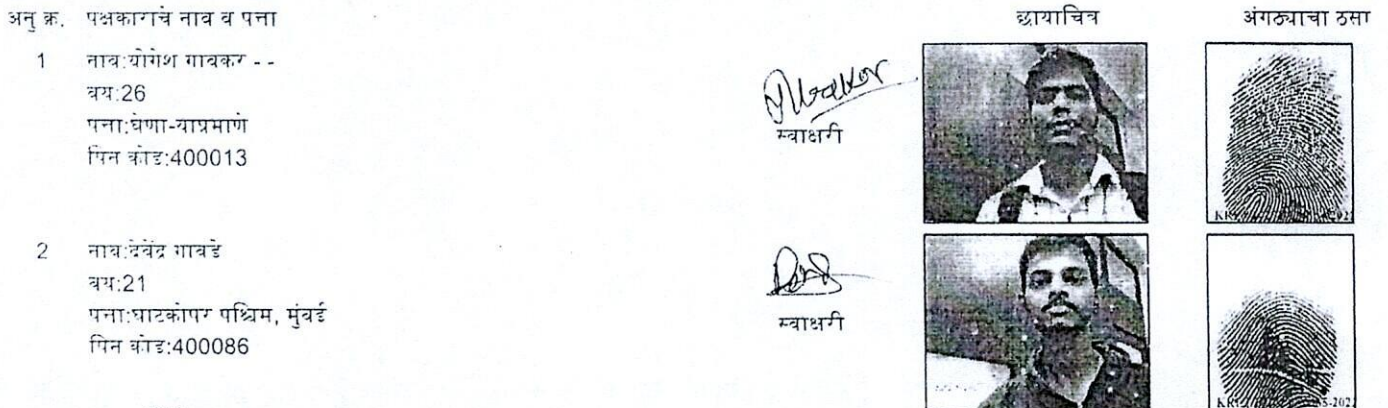 अनु क्र. पक्षकाराचे नाव व पत्ता छायाचित्र अंगठ्याचा ठसा
1 नाव:योगेश गावकर - -
वय:26
पत्ता:वेणा-याप्रमाणे
पिन कोड:400013
स्वाक्षरी
2 नाव:देवेंद्र गावडे
वय:21
पत्ता:घाटकोपर पश्चिम, मुंबई
पिन कोड:400086
स्वाक्षरी